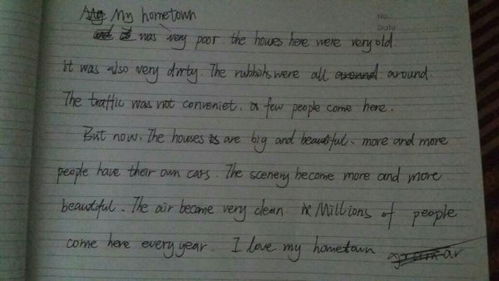 My hometown
No.
Date
was very poor. the houses here were very old.
It was also very dirty. The rubbish were all around.
The traffic was not conveniet. few people come here.
But now. The houses are big and beautiful. more and more
people have their own cars. The scenery become more and more
beautiful. The air became very clean Millions of people
come here every year. I love my hometown